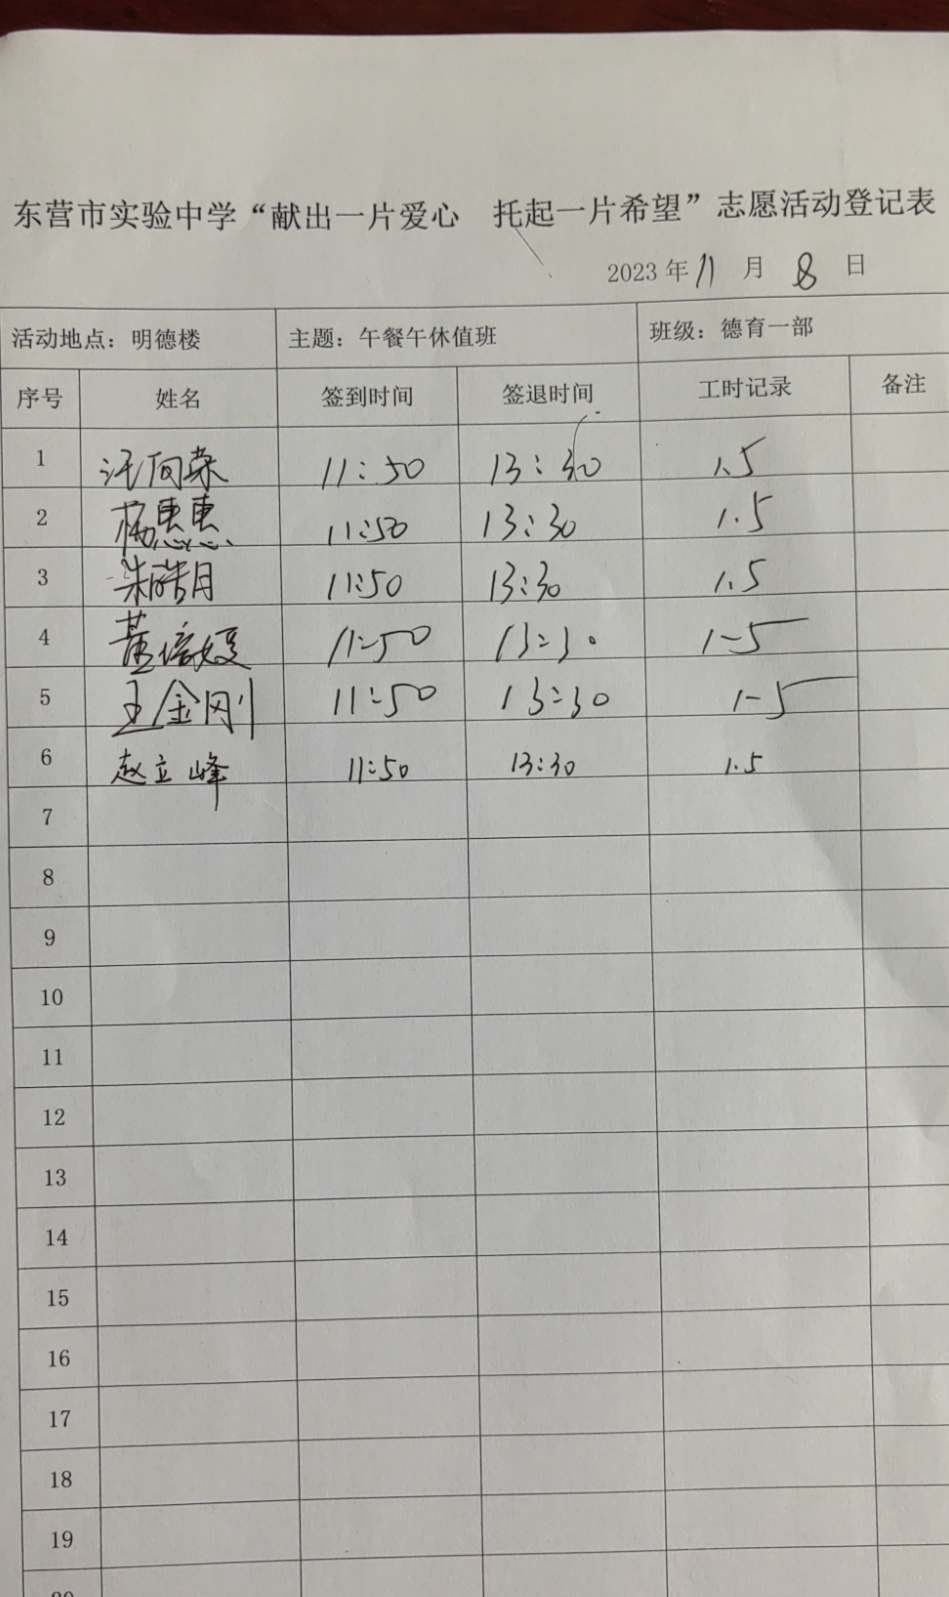 东营市实验中学“献出一片爱心 托起一片希望”志愿活动登记表
2023 年 11 月 8 日
活动地点：明德楼 主题：午餐午休值班 班级：德育一部
序号 姓名 签到时间 签退时间 工时记录 备注
1 汪向荣 11:50 13:30 1.5
2 杨惠惠 11:50 13:30 1.5
3 朱皓月 11:50 13:30 1.5
4 董 11:50 13:30 1-5
5 王金刚 11:50 13:30 1-5
6 赵立峰 11:50 13:30 1.5
7
8
9
10
11
12
13
14
15
16
17
18
19